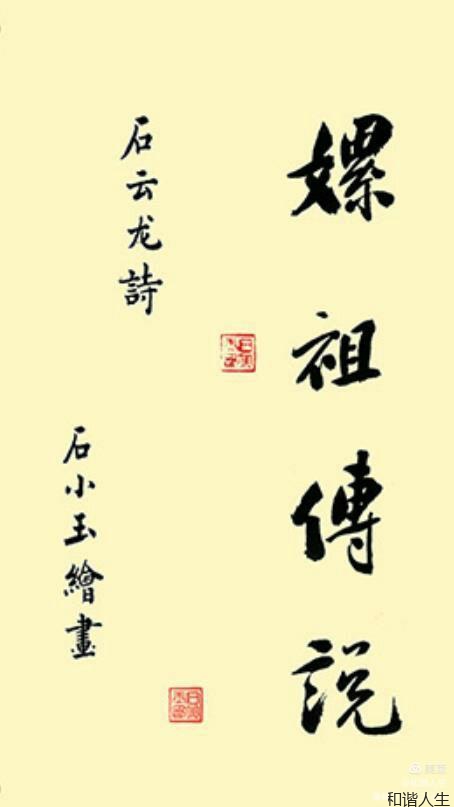 嫘祖傳説
石云龙詩
石小玉繪畫
和谐人生